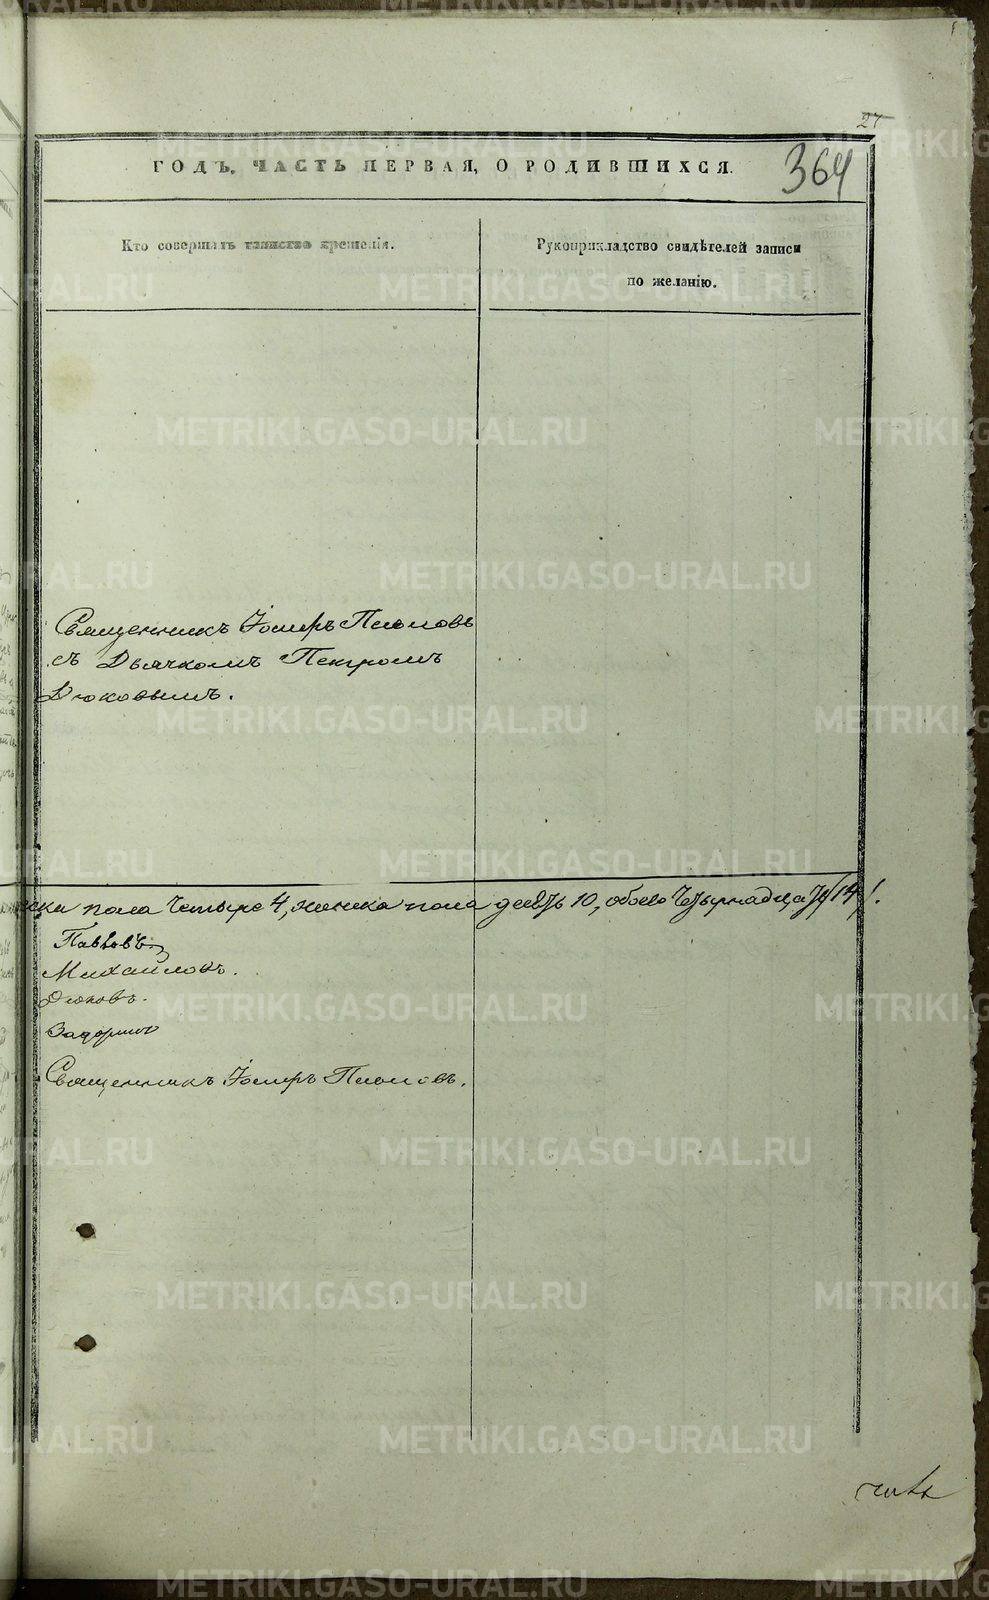 27
364
ГОДЪ, ЧАСТЬ ПЕРВАЯ, О РОДИВШИХСЯ.
Кто совершалъ таинство крещенія.
Рукоприкладство свидѣтелей записи
по желанію.
Священникъ
съ Дьячкомъ Петромъ
Дюковымъ.
пола четыре 4, женска пола 10, обоего 14.
Павловъ
Михайловъ.
Дюковъ.
Задоринъ
Священникъ
METRIKI.GASO-URAL.RU